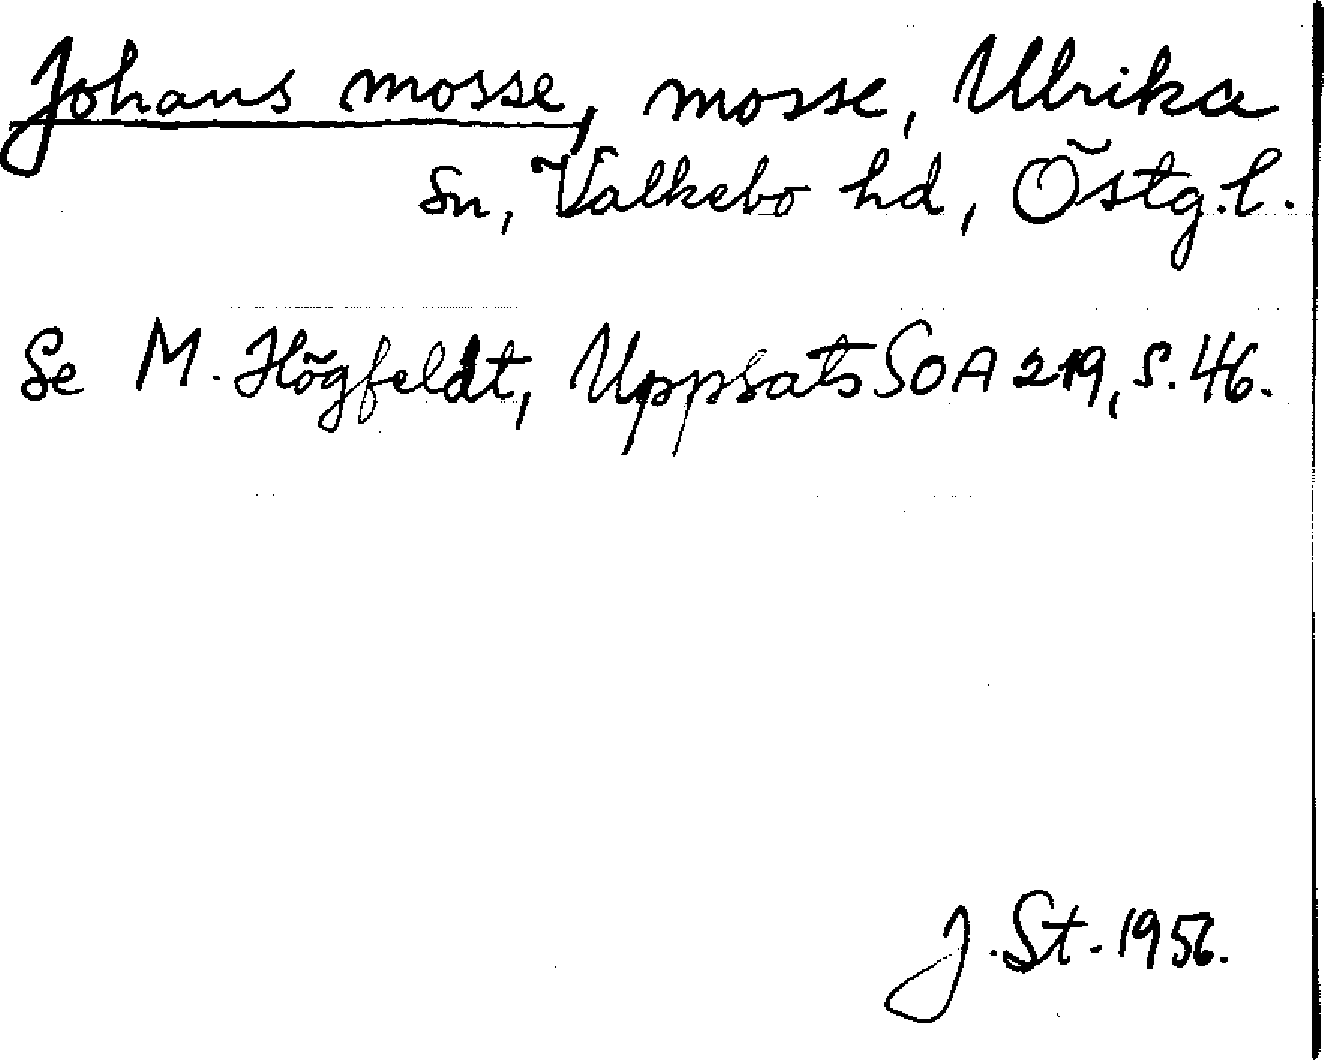 Johans mosse, mosse, Ulrika
sn, Valkebo hd, Östg.l.
Se M. Högfeldt, Uppsats SOA 219, s. 46.
J. St. 1956.